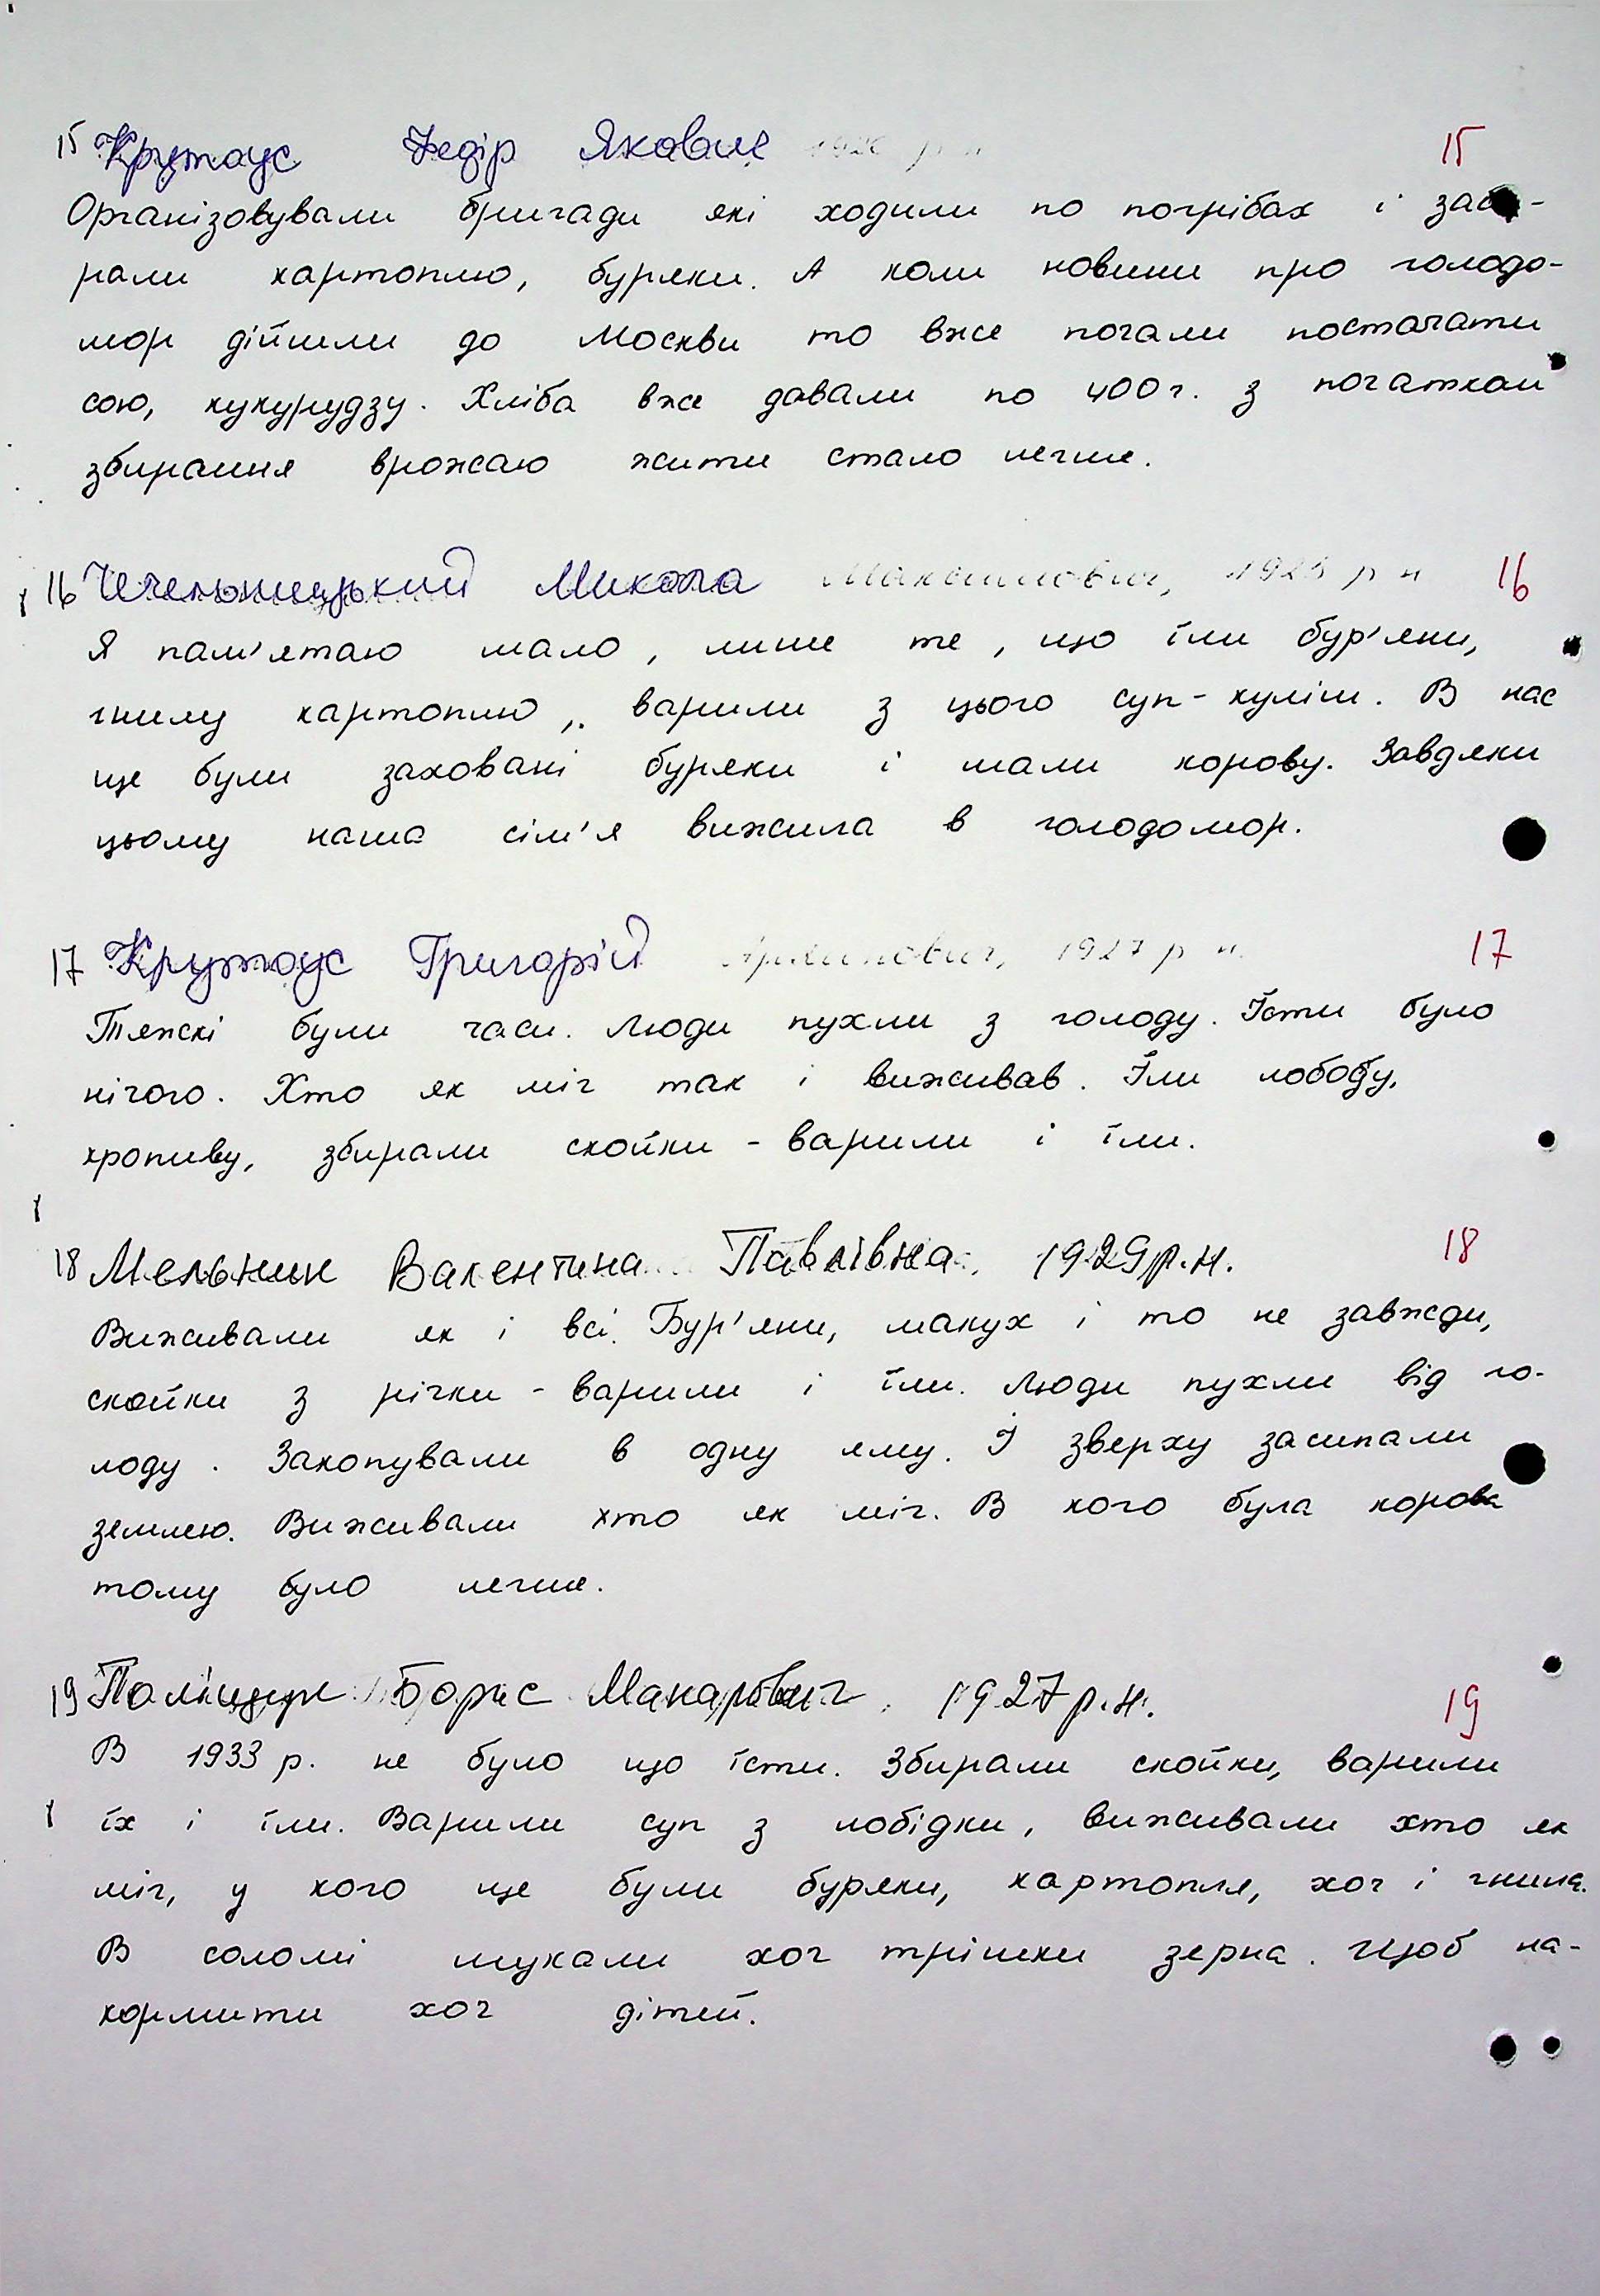 15 Крутоус Федір Якович 15
Організовували бригади які ходили по погрібах і заби-
рали картоплю, буряки. А коли новини про голодо-
мор дійшли до Москви то вже почали постачати
сою, кукурудзу. Хліба вже давали по 400 г. з початком
збирання врожаю жити стало легше.
16 Чечельницький Микола Максимович, р н 16
Я пам'ятаю мало, лише те, що їли бур'яни,
гнилу картоплю, варили з цього суп-куліш. В нас
ще були заховані буряки і мали корову. Завдяки
цьому наша сім'я вижила в голодомор.
17 Крутоус Григорій 1927 р н. 17
Тяжкі були часи. Люди пухли з голоду. Їсти було
нічого. Хто як міг так і виживав. Їли лободу,
кропиву, збирали скойки - варили і їли.
18 Мельник Валентина Павлівна, 1929 р.н. 18
Виживали як і всі. Бур'яни, макух і то не завжди,
скойки з річки - варили і їли. Люди пухли від го-
лоду. Закопували в одну яму. І зверху засипали
землею. Виживали хто як міг. В кого була корова
тому було легше.
19 Поліщук Борис Макарович, 1927 р.н. 19
В 1933 р. не було що їсти. Збирали скойки, варили
їх і їли. Варили суп з лобідки, виживали хто як
міг, у кого ще були буряки, картопля, хоч і гнила.
В соломі шукали хоч трішки зерна. Щоб на-
кормити хоч дітей.